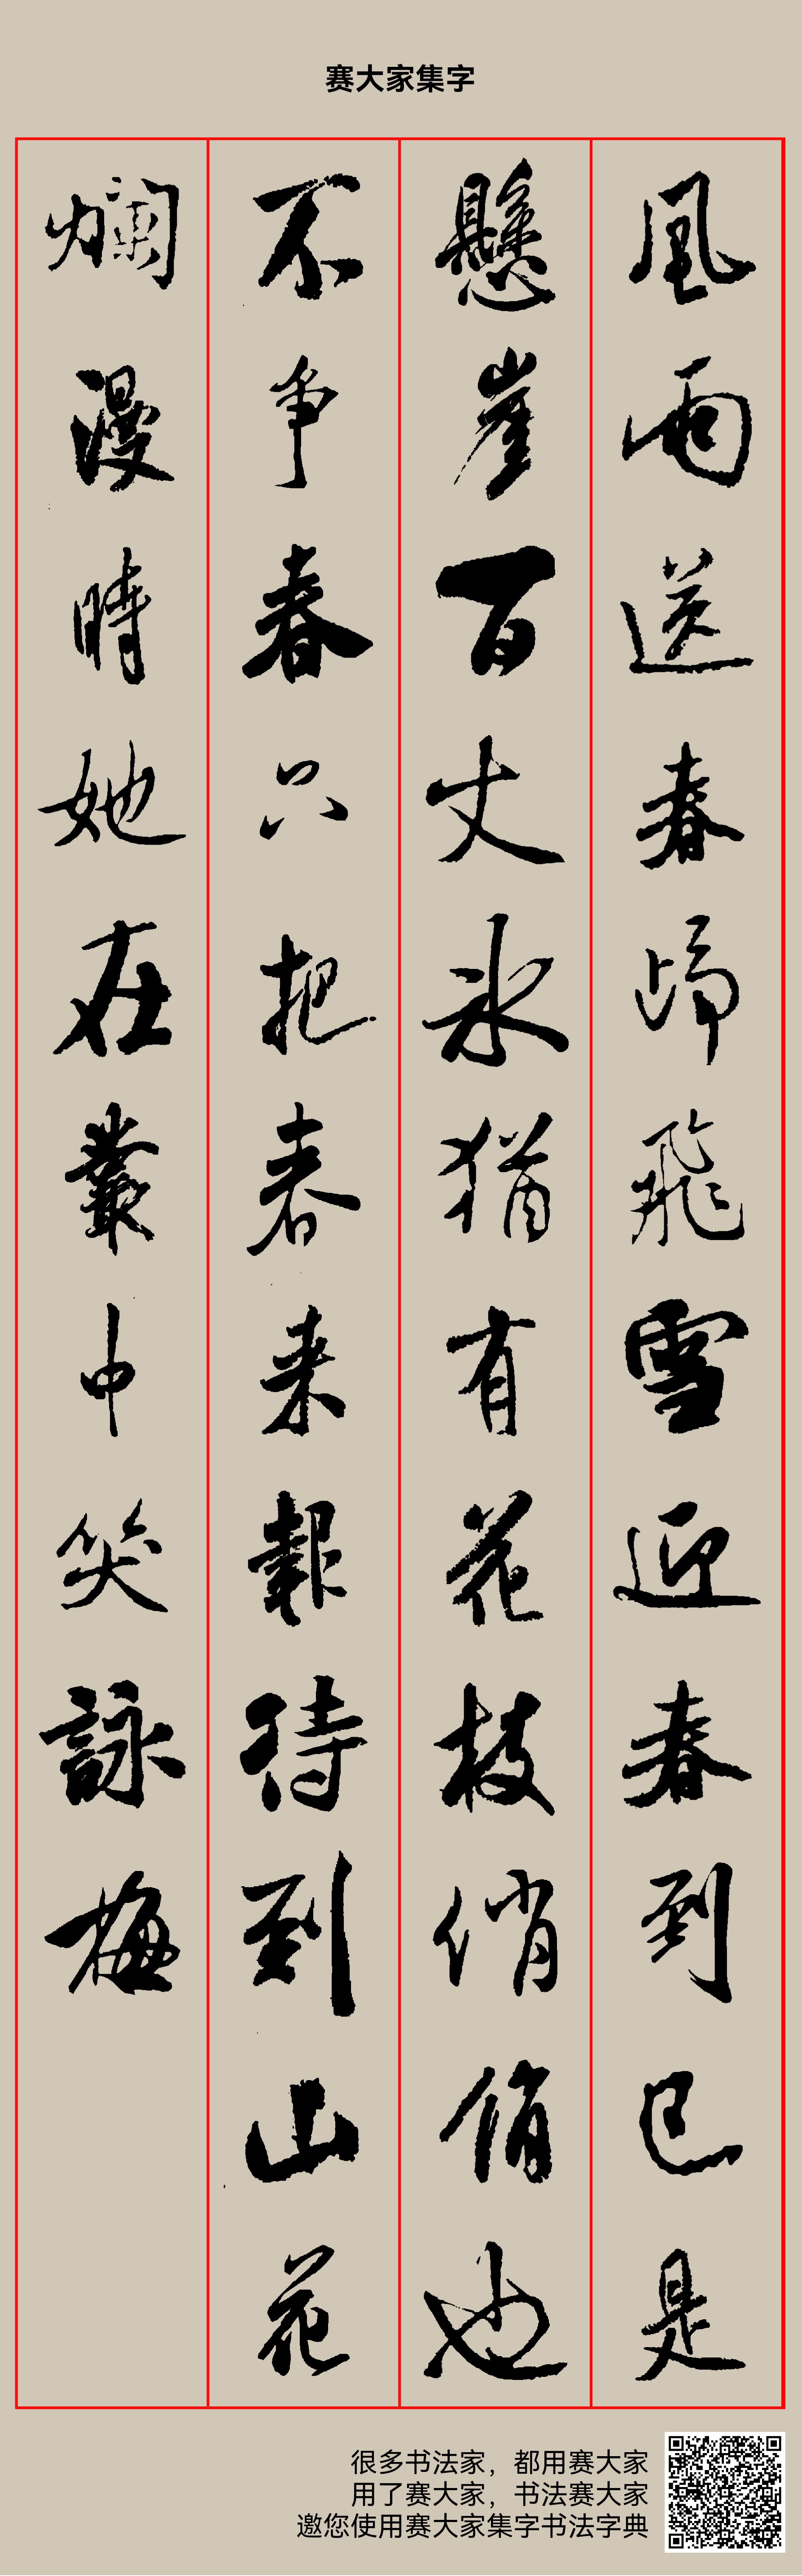 赛大家集字
風雨送春歸飛雪迎春到已是
懸崖百丈冰猶有花枝俏俏也
不爭春只把春来報待到山花
爛漫時她在叢中笑詠梅
很多书法家，都用赛大家
用了赛大家，书法赛大家
邀您使用赛大家集字书法字典